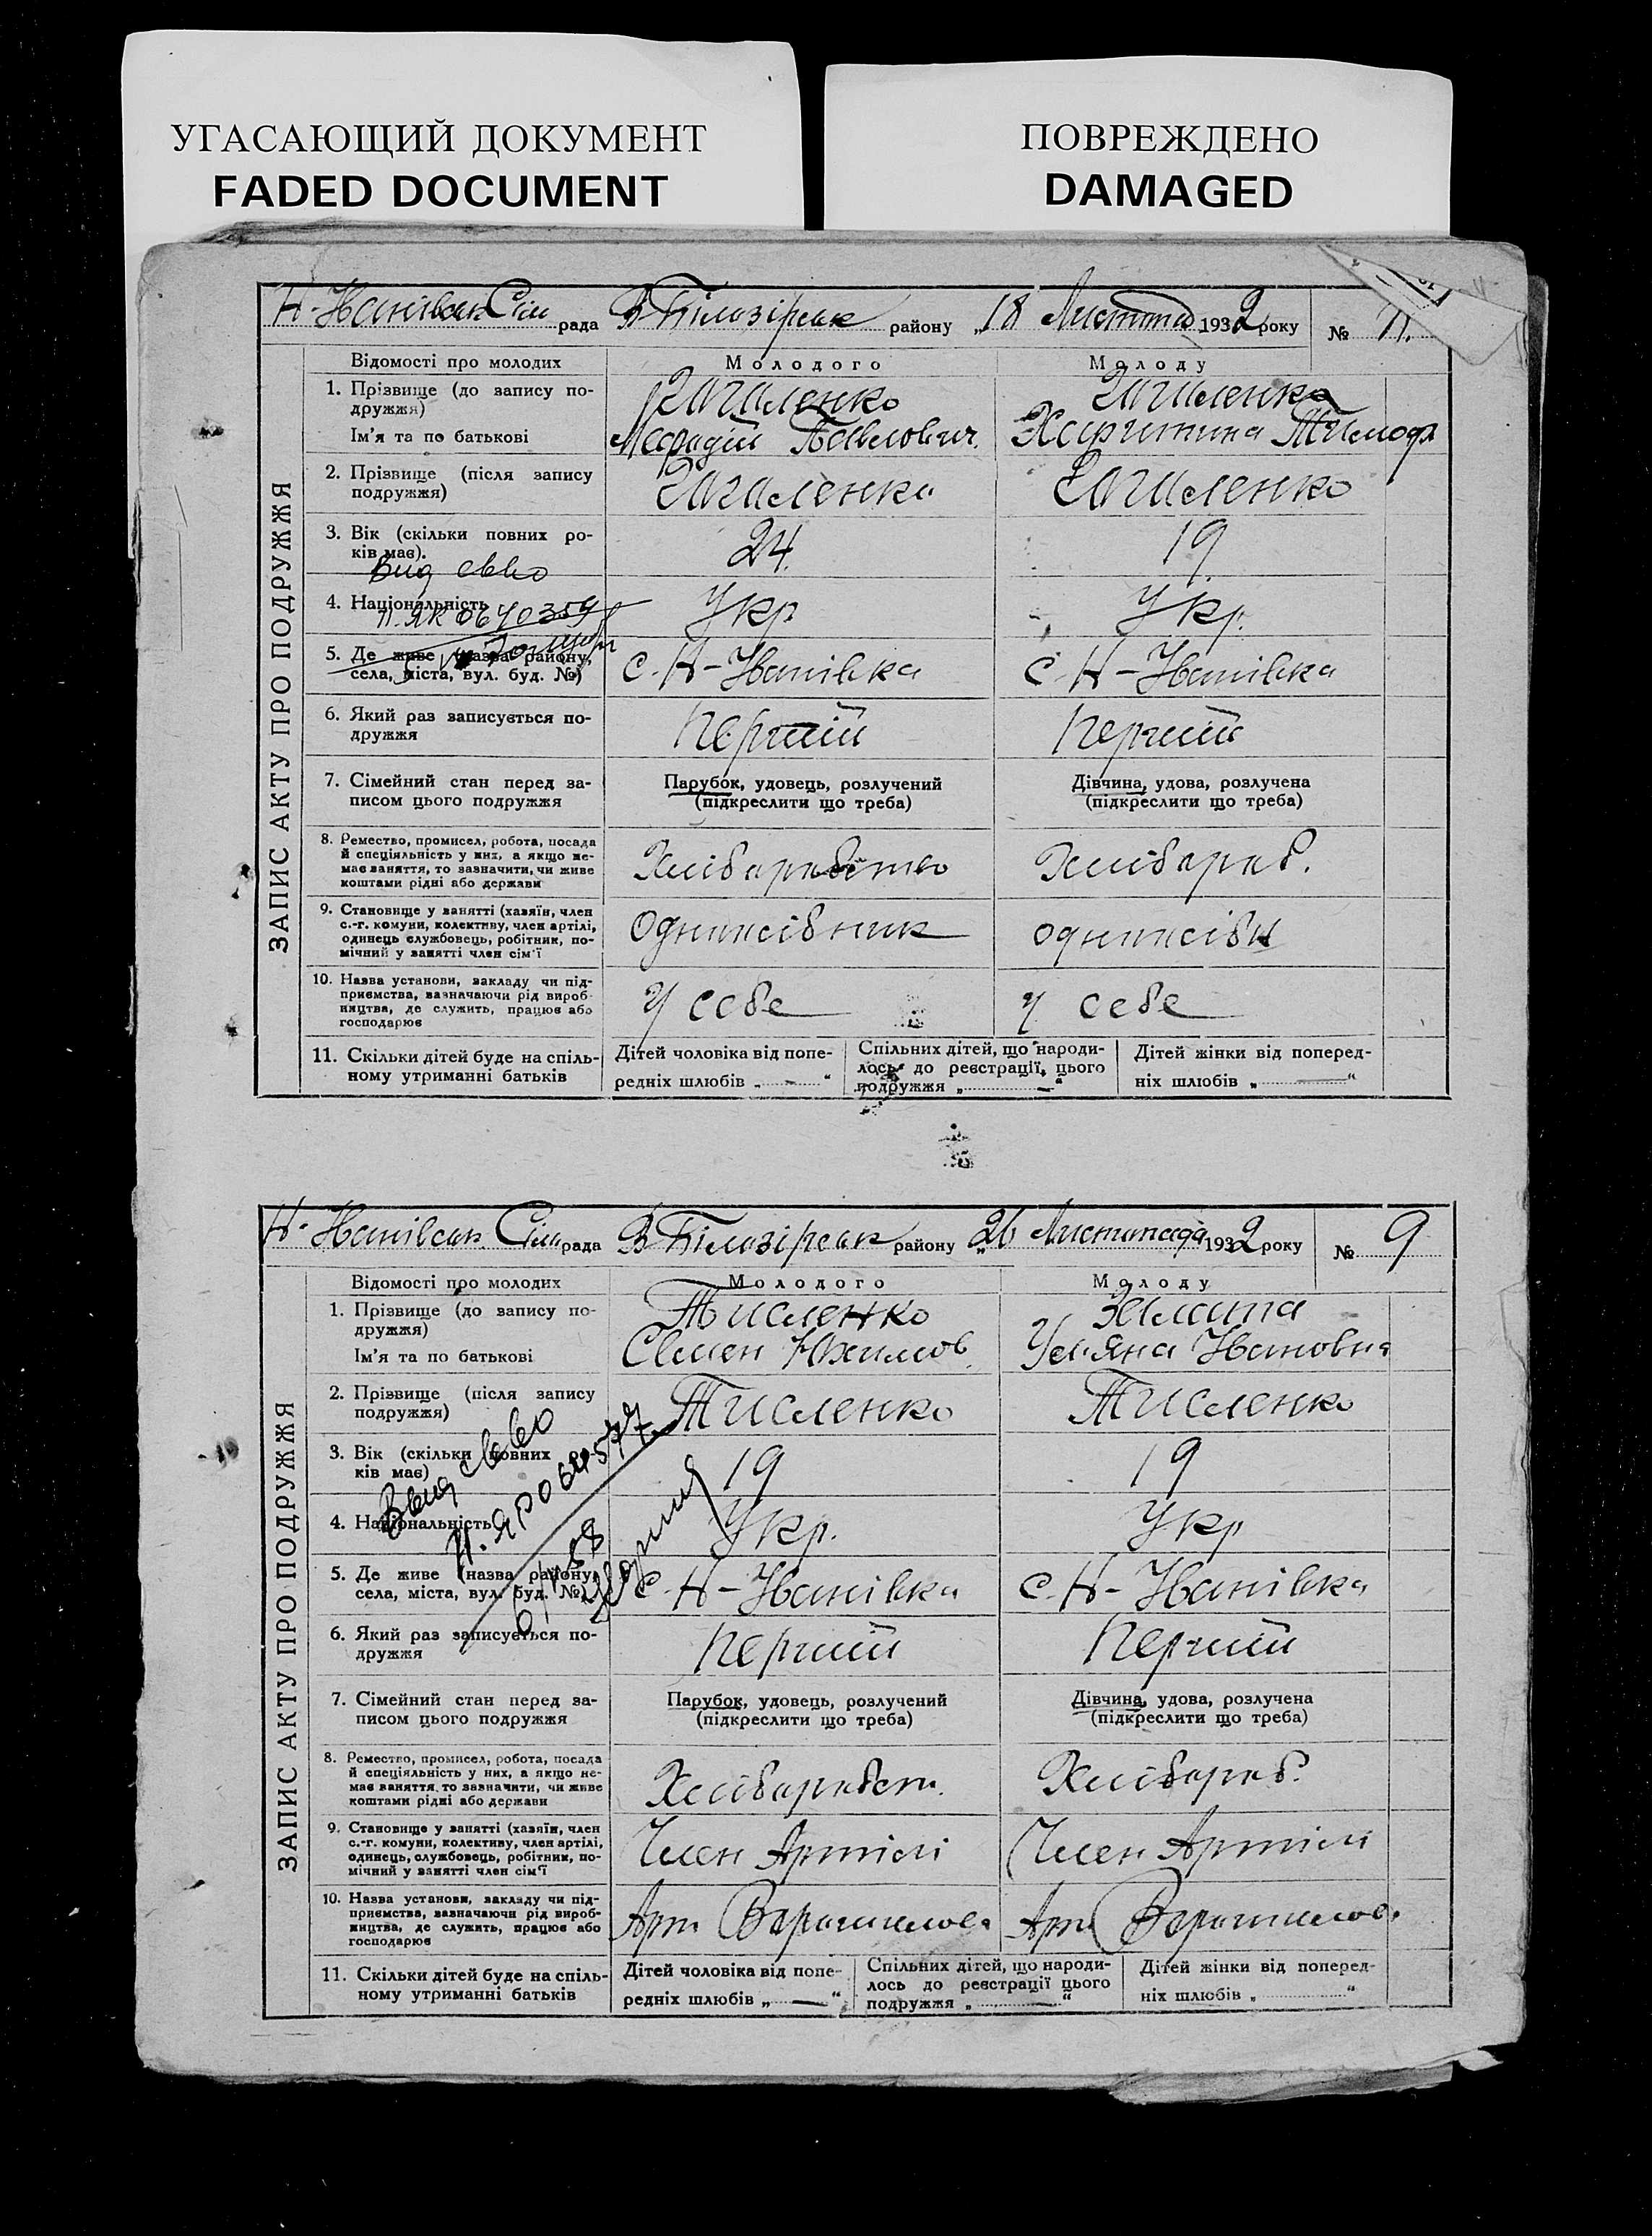 УГАСАЮЩИЙ ДОКУМЕНТ
FADED DOCUMENT
ПОВРЕЖДЕНО
DAMAGED
Н-Іванівськ Сіль рада В Білозірськ району „18 Листопад 1932 року №
ЗАПИС АКТУ ПРО ПОДРУЖЖЯ
Відомості про молодих Молодого Молоду
1. Прізвище (до запису по-
дружжя)
Ім'я та по батькові Павлович Харитина Тимоф
2. Прізвище (після запису
подружжя)
3. Вік (скільки повних ро- 24. 19
ків має).
Вид св-во
4. Національність Укр Укр.
5. Де живе (назва району, с. Н-Іванівка с. Н-Іванівка
села, міста, вул. буд. №)
6. Який раз записується по- Перший Перший
дружжя
7. Сімейний стан перед за- Парубок, удовець, розлучений Дівчина, удова, розлучена
писом цього подружжя (підкреслити що треба) (підкреслити що треба)
8. Ремество, промисел, робота, посада
й спеціяльність у них, а якщо не-
має заняття, то зазначити, чи живе Хлібаробство Хлібароб.
коштами рідні або держави
9. Становище у занятті (хазяїн, член
с.-г. комуни, колективу, член артілі, Одноосібник одноосібн
одинець службовець, робітник, по-
мічний у занятті член сім'ї
10. Назва установи, закладу чи під-
приємства, зазначаючи рід вироб- у себе у себе
ництва, де служить, працює або
господарює
11. Скільки дітей буде на спіль- Дітей чоловіка від попе- Спільних дітей, що народи- Дітей жінки від поперед-
ному утриманні батьків редніх шлюбів „ — “ лось до реєстрації цього ніх шлюбів „ — “
подружжя „ — “
Н-Іванівськ. Сіль рада В Білозірськ району „26 Листопада 1932 року № 9
ЗАПИС АКТУ ПРО ПОДРУЖЖЯ
Відомості про молодих Молодого Молоду
1. Прізвище (до запису по- Тисленко
дружжя)
Ім'я та по батькові Семен Юхимов Ульяна Івановна
2. Прізвище (після запису Тисленко Тисленко
подружжя)
3. Вік (скільки повних ро- 19 19
ків має)
Вид св-во
4. Національність Укр. Укр
5. Де живе (назва району, с. Н-Іванівка с. Н-Іванівка
села, міста, вул. буд. №)
6. Який раз записується по- Перший Перший
дружжя
7. Сімейний стан перед за- Парубок, удовець, розлучений Дівчина, удова, розлучена
писом цього подружжя (підкреслити що треба) (підкреслити що треба)
8. Ремество, промисел, робота, посада
й спеціяльність у них, а якщо не-
має заняття, то зазначити, чи живе Хлібаробст. Хлібароб.
коштами рідні або держави
9. Становище у занятті (хазяїн, член
с.-г. комуни, колективу, член артілі, Член Артілі Член Артілі
одинець, службовець, робітник, по-
мічний у занятті член сім'ї
10. Назва установи, закладу чи під-
приємства, зазначаючи рід вироб- Арт Ворошилова Арт Ворошилов.
ництва, де служить, працює або
господарює
11. Скільки дітей буде на спіль- Дітей чоловіка від попе- Спільних дітей, що народи- Дітей жінки від поперед-
ному утриманні батьків редніх шлюбів „ — “ лось до реєстрації цього ніх шлюбів „ “
подружжя „ — “